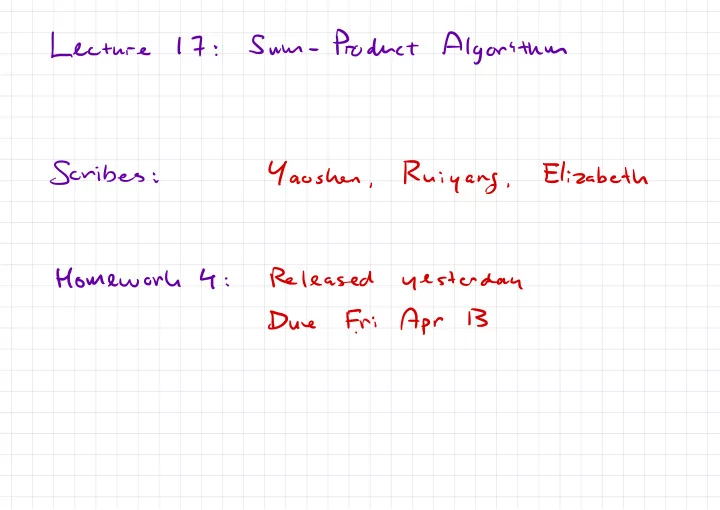 Lecture 17: Sum-Product Algorithm
Scribes: Yaoshen, Ruiyang, Elizabeth
Homework 4: Released yesterday
Due Fri Apr 13